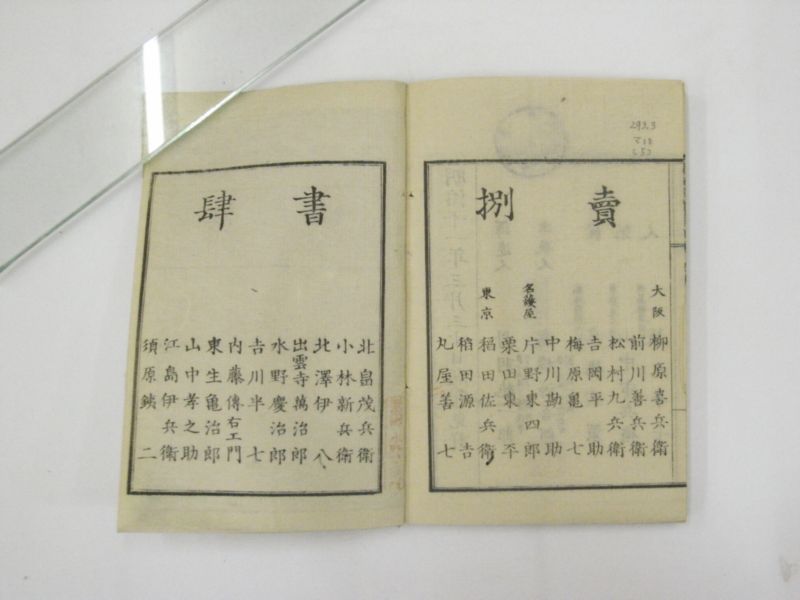 賣捌
大阪 柳原喜兵衛
前川善兵衛
松村九兵衛
吉岡平助
梅原亀七
中川勘助
名護屋 片野東四郎
栗田東平
東京 稻田佐兵衛
稻田源吉
丸屋善七
書肆
北畠茂兵衛
小林新兵衛
北澤伊八
出雲寺萬治郎
水野慶治郎
吉川半七
内藤傳右エ門
東生亀治郎
山中孝之助
江島伊兵衛
須原鐵二
293.3